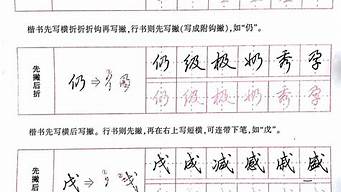 楷书先写横折折折钩再写撇,行书则先写撇(写成附钩撇),如“仍”。
先撇后折
仍⇒仍
仍 级 极 奶 秀 孕
仍 级 极 奶 秀 孕
楷书先写横后写撇。行书则先撇,再在右上写短横,可连带下笔,如“戊”。
先撇后横
戊⇒戊
戊 成 减 感 戚 威